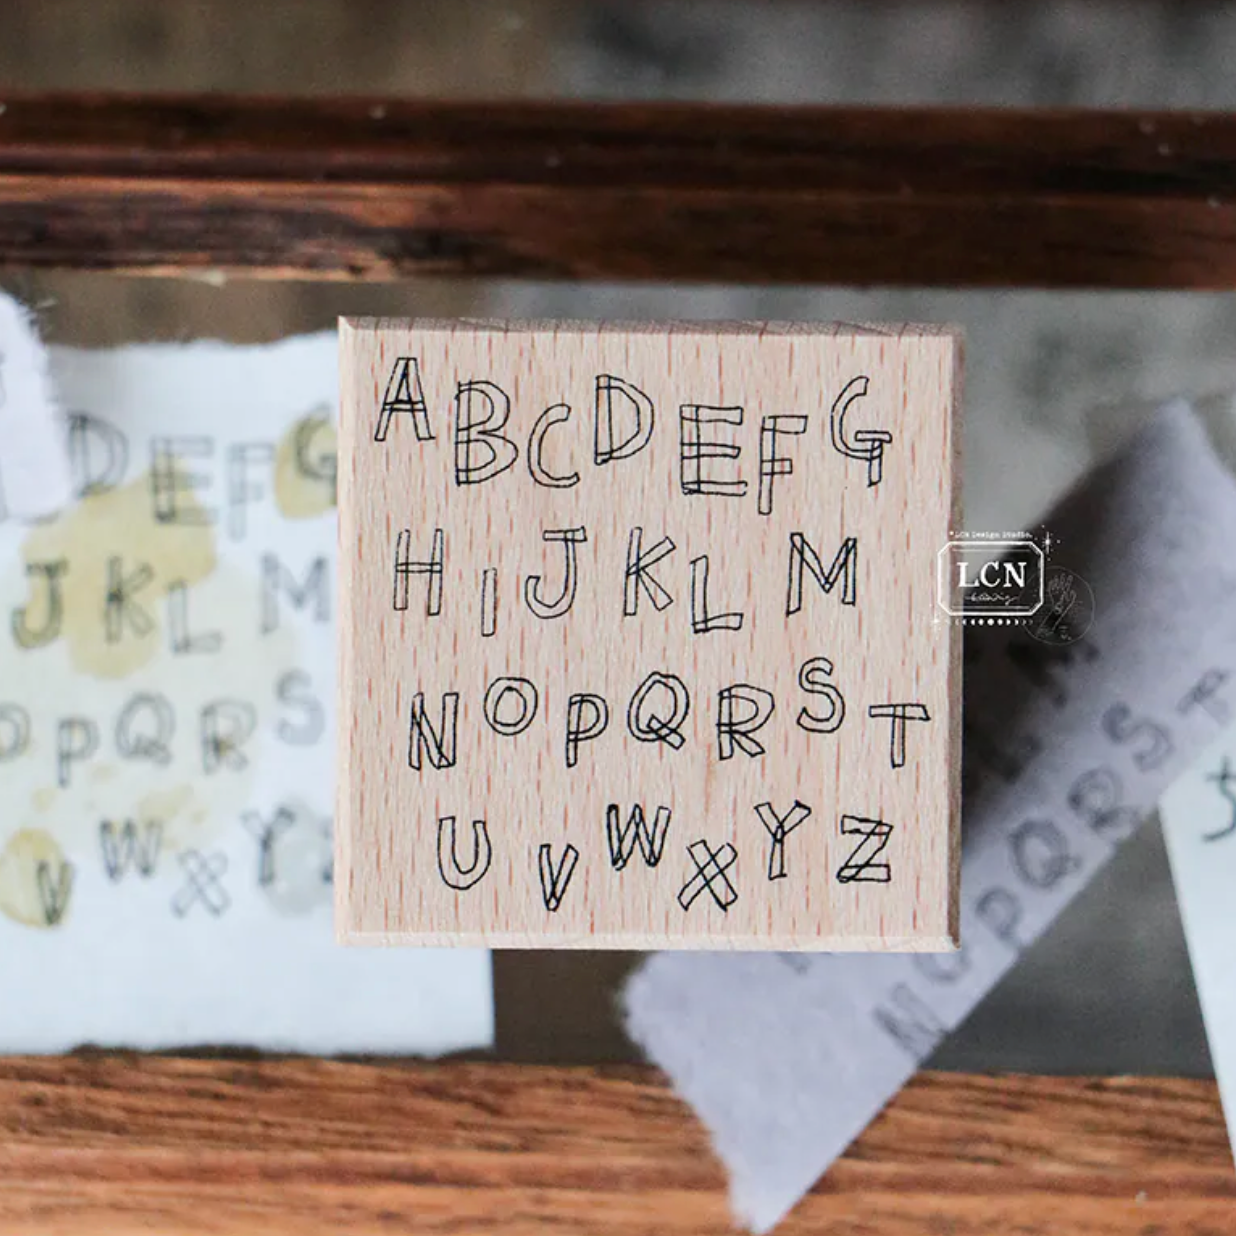 A B C D E F G
H I J K L M
N O P Q R S T
U V W X Y Z
LCN Design Studio.
LCN
D E F G
J K L M
O P Q R S
V W X Y
N O P Q R S T